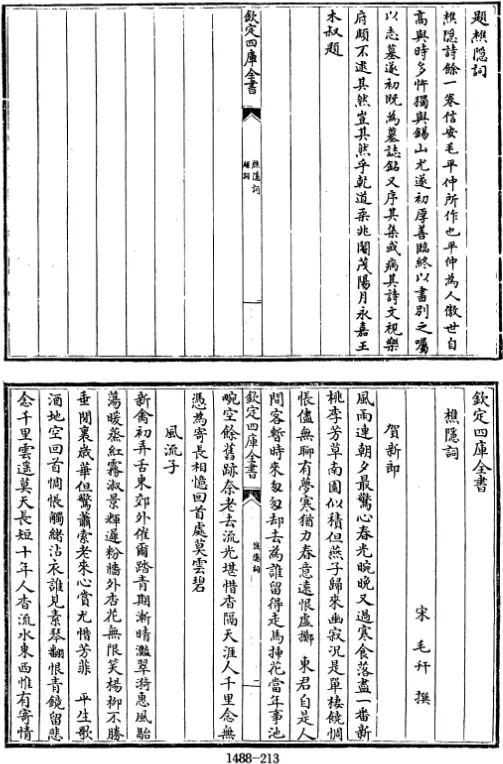 題樵隱詞
樵隱詩餘一卷信安毛平仲所作也平仲為人傲世自
高與時多忤獨與錫山尤遂初厚善臨終以書別之囑
以志墓遂初既為墓誌銘又序其集或病其詩文視樂
府頗不逮其然豈其然乎乾道柔兆閹茂陽月永嘉王
木叔題
欽定四庫全書
樵隱詞
題詞
一
欽定四庫全書
樵隱詞
宋 毛幵 撰
賀新郎
風雨連朝夕最驚心春光晼晚又過寒食落盡一番新
桃李芳草南園似積但燕子歸來幽寂況是單棲饒惆
悵儘無聊有夢寒猶力春意遠恨虛擲 東君自是人
間客暫時來匆匆却去為誰留得走馬揷花當年事池
欽定四庫全書
樵隱詞
二
畹空餘舊跡奈老去流光堪惜杳隔天涯人千里念無
憑為寄長相憶回首處莫雲碧
風流子
新禽初弄舌東郊外催爾踏青期漸晴灩翠漪惠風駘
蕩暖蒸紅霧淑景輝遲粉牆外杏花無限笑楊柳不勝
垂閒裏歲華但驚蕭索老來心賞尤惜芳菲 平生歌
酒地空回首惆悵觸緒沾衣誰見素琴翻恨青鏡留悲
念千里雲遙莫天長短十年人杳流水東西惟有寄情
1488—213